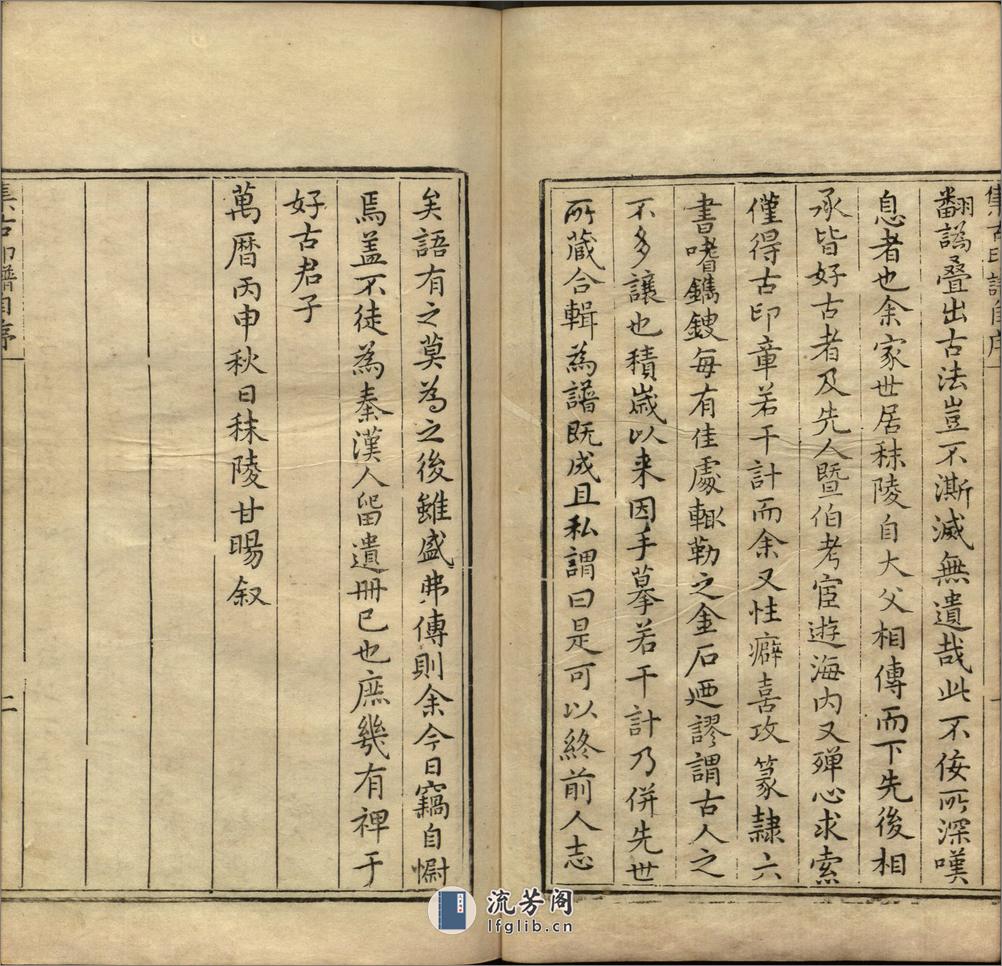 集古印譜自序
翻譌叠出古法豈不澌滅無遺哉此不佞所深嘆
息者也余家世居秣陵自大父相傳而下先後相
承皆好古者及先人暨伯考宦遊海内又殫心求索
僅得古印章若干計而余又性癖喜攻篆隷六
書嗜鐫鍥每有佳處輙勒之金石廼謬謂古人之
不多讓也積嵗以来因手摹若干計乃併先世
所蔵合輯為譜既成且私謂曰是可以終前人志
矣語有之莫為之後雖盛弗傳則余今日竊自慰
焉盖不徒為秦漢人留遺冊已也庶幾有裨于
好古君子
萬曆丙申秋日秣陵甘暘叙
集古印譜自序
二
流芳阁
lfglib.cn